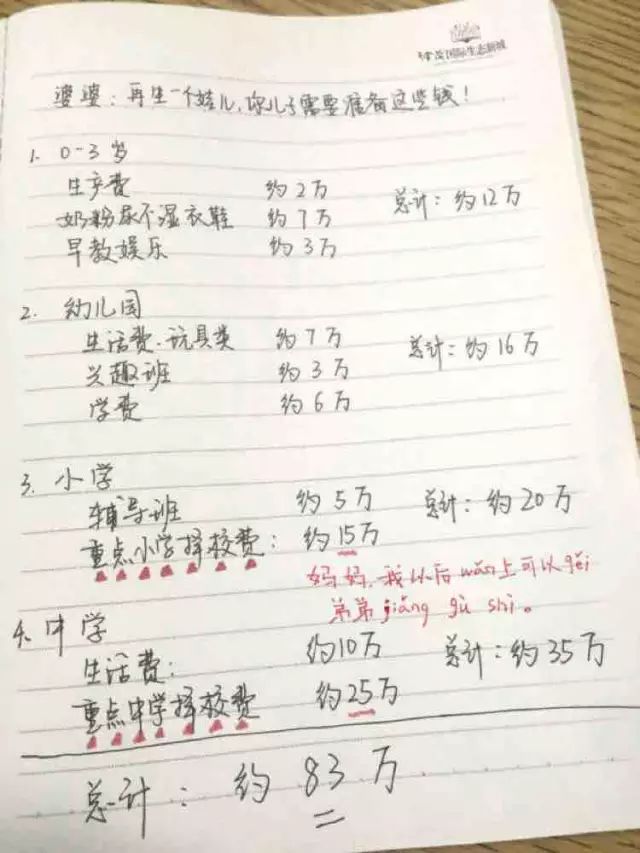 国际生态新城
婆婆：再生一个娃儿，你儿子需要准备这些钱！
1. 0-3岁
生产费 约2万
奶粉尿不湿衣鞋 约7万 总计：约12万
早教娱乐 约3万
2. 幼儿园
生活费.玩具类 约7万 总计：约16万
兴趣班 约3万
学费 约6万
3. 小学
辅导班 约5万 总计：约20万
重点小学择校费： 约15万
妈妈，我以后wǎn上可以gěi
弟弟jiǎng gù shi。
4. 中学
生活费： 约10万 总计：约35万
重点中学择校费 约25万
总计：约83万